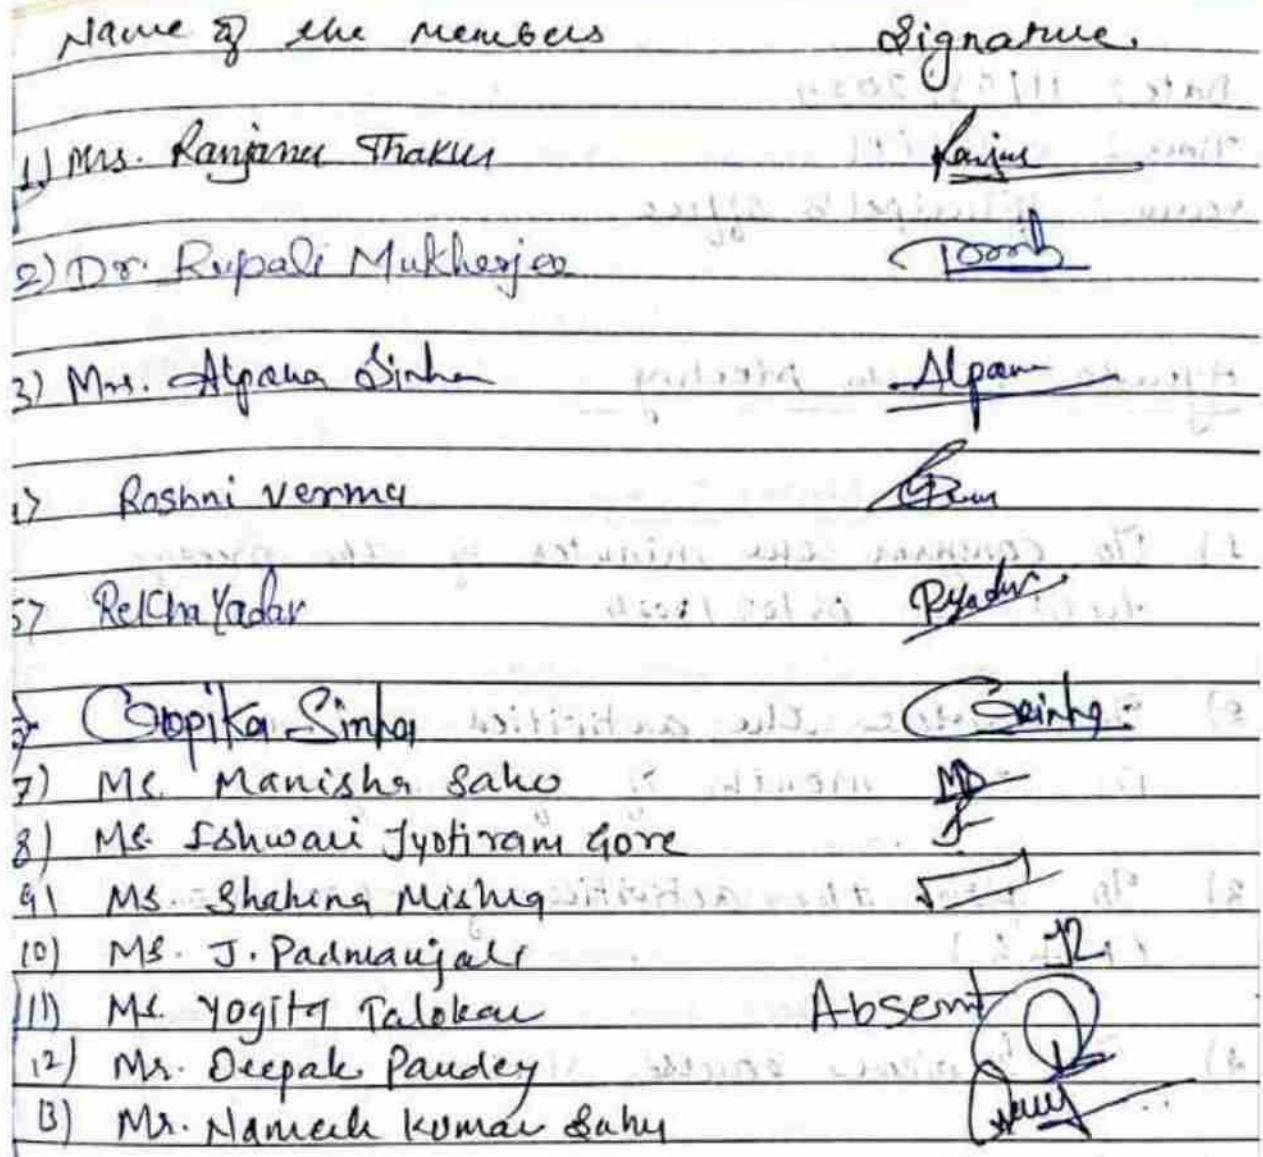 Name of the members Signature.
1) Mrs. Ranjana Thakur Ranjna
2) Dr. Rupali Mukherjee
3) Mrs. Alpana Sinha Alpana
Roshni Verma
5) Rekha Yadav RYadav
Gopika Sinha GSinha
7) Ms. Manisha Saho
8) Ms. Ishwari Jyotiram Gore
9) Ms. Shahena Mishra
10) Ms. J. Padmanjali
11) Ms. Yogita Talokar Absent
12) Mr. Deepak Pandey
13) Mr. Kumar Sahu